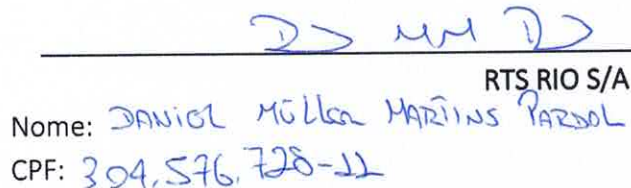 RTS RIO S/A
Nome: DANIEL MÜLLER MARTINS PARDAL
CPF: 304.576.728-11